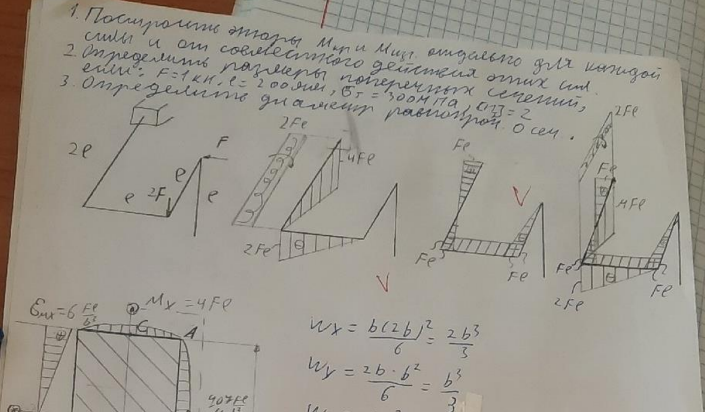 1. Построить эпюры Mкр и Mизг. отдельно для каждой
силы и от совместного действия этих сил.
2. Определить размеры поперечных сечений,
если: F=1кн, l=200мм, σт=300МПа, [n]=2
3. Определить диаметр равнопроч. О сеч.
2l
l
2F
l
F
l
2Fl
4Fl
2Fl
Fl
Fl
Fl
2Fl
Fl
4Fl
Fl
2Fl
Fl
Mx = 4Fl
A
Wx = b(2b)²/6 = 2b³/3
Wy = 2b·b²/6 = b³/3